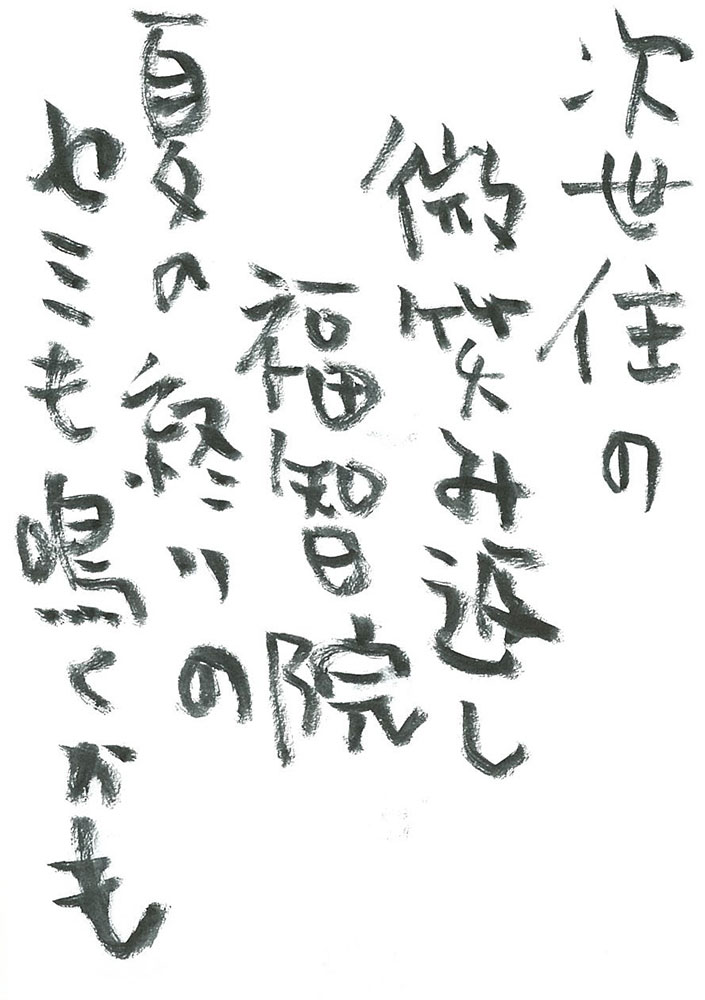 次世住の
微笑み返し
福智院
夏の終りの
セミも鳴くかも